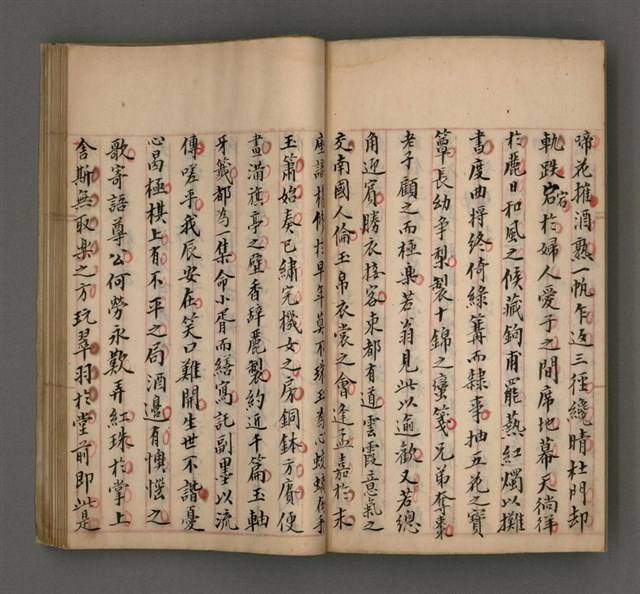 啼花摧酒熟一帆乍返三徑纔晴杜門却
軌跌宕宕於婦人愛子之間席地幕天徜徉
於麗日和風之候藏鉤甫罷熱紅燭以攤
書度曲將終倚綠篝而隸事抽五花之寶
簟長幼爭梨製十錦之蠻箋兄弟奪棗
老子顧之而極樂若翁見此以逾歡又若總
角迎賓勝衣接客東都有道雲霞意氣之
交南國人倫玉帛衣裳之會逢孟嘉於末
座識楊修於早年莫不
玉簫始奏已繡完機女之房銅鉢方賡便
畫滿旗亭之壁香辭麗製約近千篇玉軸
牙籤都為一集命小胥而繕寫託副墨以流
傳嗟乎我辰安在笑口難開生世不諧憂
心曷極棋上有不平之局酒邊有懊惱之
歌寄語尊公何勞永歎弄紅珠於掌上
舍斯無取樂之方玩翠羽於堂前即此是